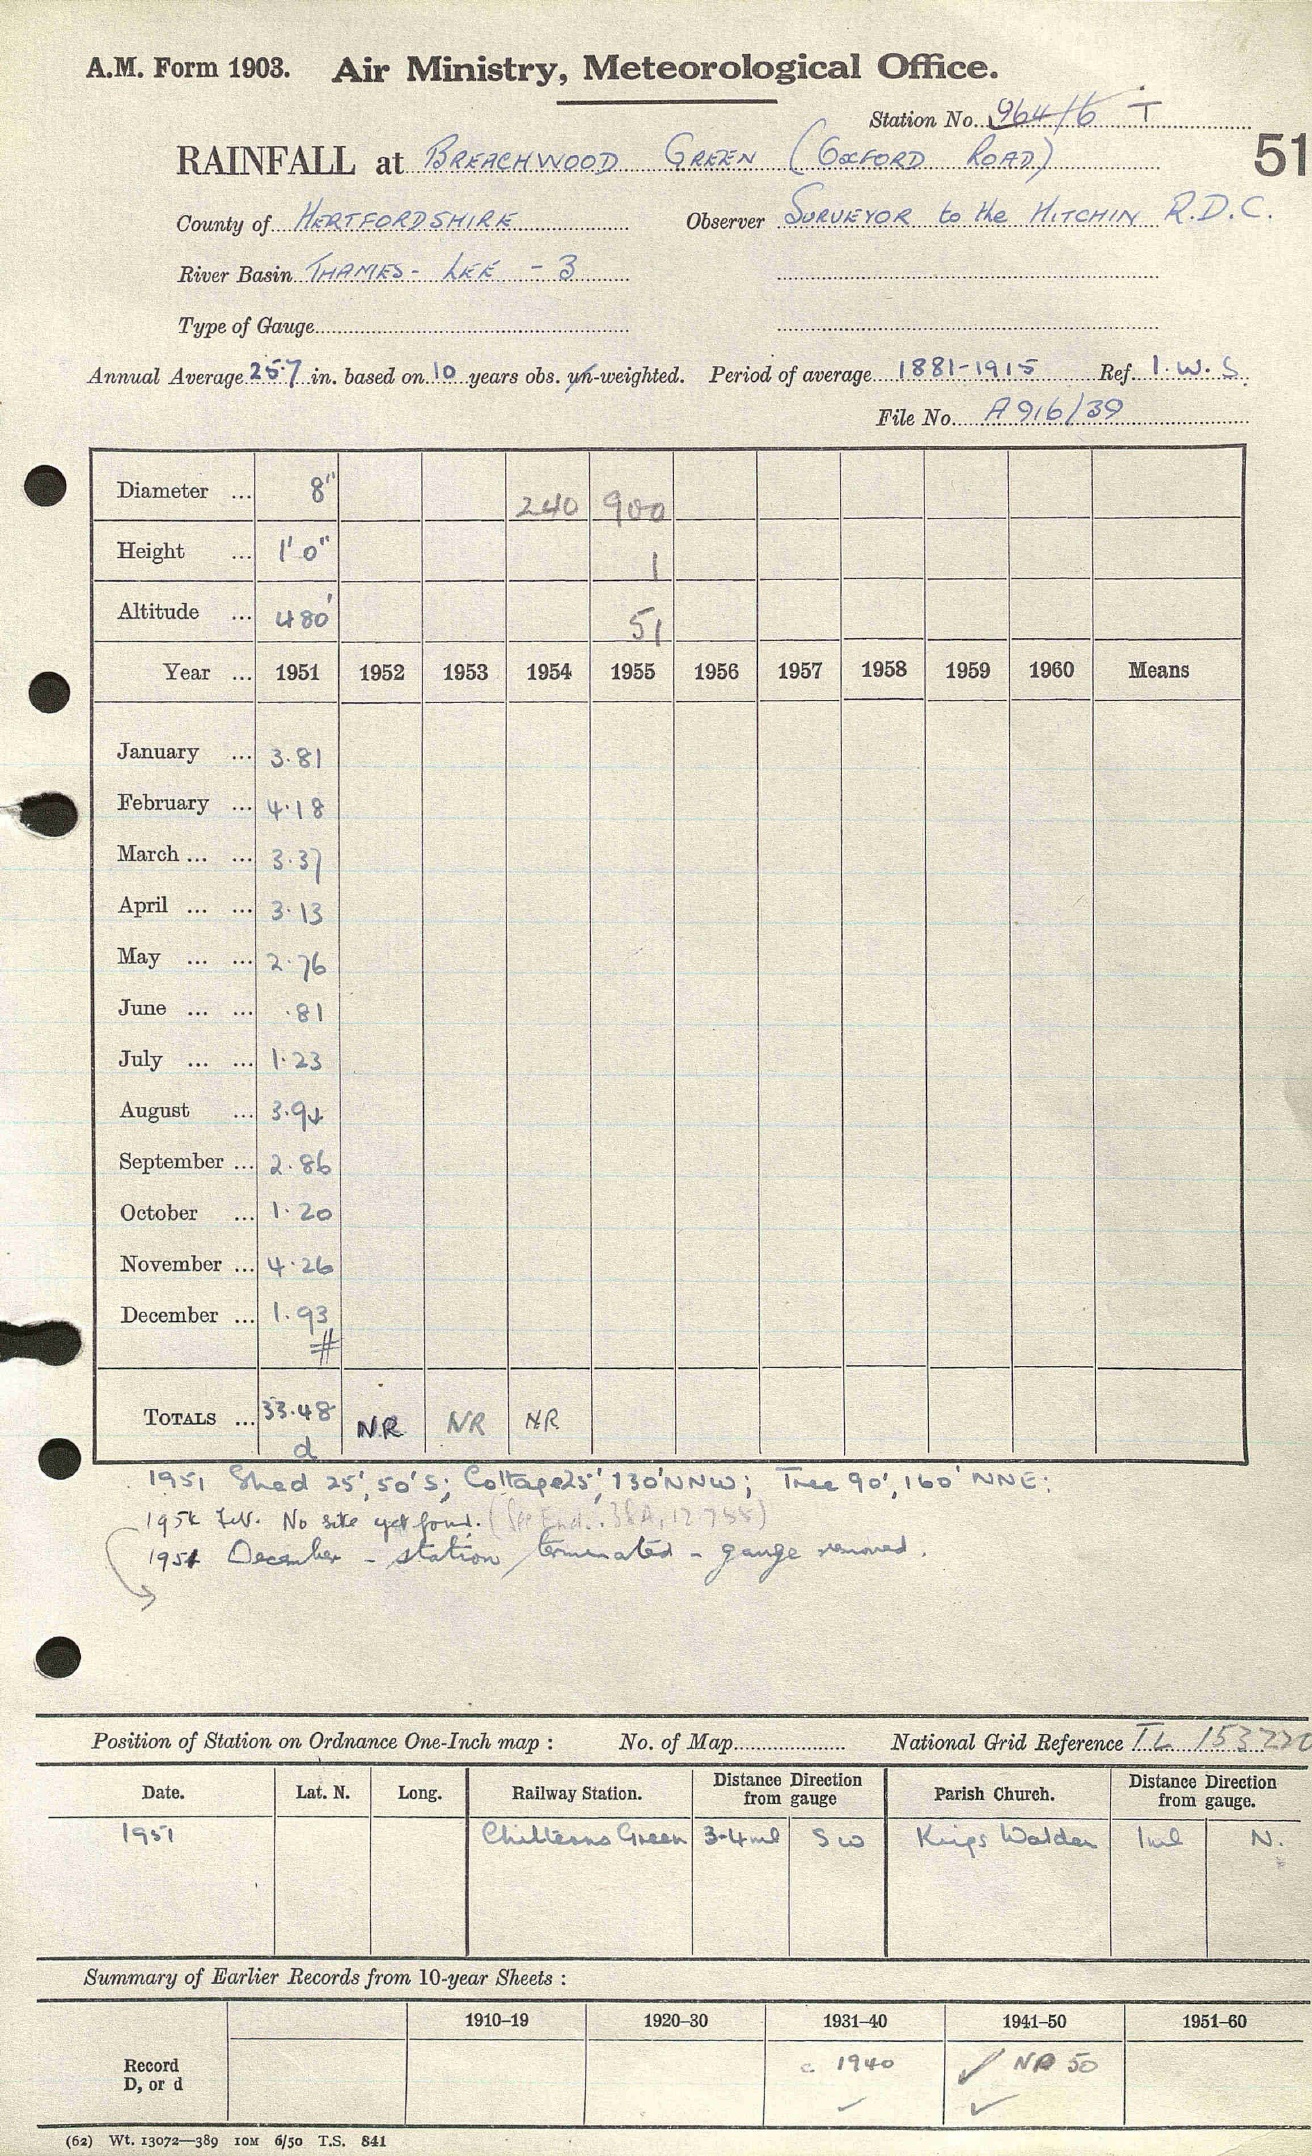 A.M. Form 1903. Air Ministry, Meteorological Office.
Station No. 964/6 T
RAINFALL at BREACHWOOD GREEN (OXFORD ROAD) 51
County of HERTFORDSHIRE Observer SURVEYOR to the HITCHIN R.D.C.
River Basin THAMES - LEE - 3
Type of Gauge
Annual Average 25·7 in. based on 10 years obs. un-weighted. Period of average 1881-1915 Ref. I.W.S.
File No. A916/39
Diameter ... 8" 240 900
Height ... 1' 0" 1
Altitude ... 480' 51
Year ... 1951 1952 1953 1954 1955 1956 1957 1958 1959 1960 Means
January ... 3·81
February ... 4·18
March ... ... 3·37
April ... ... 3·13
May ... ... 2·76
June ... ... ·81
July ... ... 1·23
August ... 3·94
September ... 2·86
October ... 1·20
November ... 4·26
December ... 1·93
#
TOTALS ... 33·48 NR NR NR
d
1951 Shed 25', 50' S; Cottage 25', 130' NNW; Tree 90', 160' NNE;
No site yet found.
1954 December - station terminated - gauge removed.
Position of Station on Ordnance One-Inch map : No. of Map National Grid Reference TL 153220
Date. Lat. N. Long. Railway Station. Distance Direction from gauge Parish Church. Distance Direction from gauge.
1951 Chilterns Green 3-4ml SW Kings Walden 1ml N.
Summary of Earlier Records from 10-year Sheets :
1910–19 1920–30 1931–40 1941–50 1951–60
Record D, or d c 1940 ✓ NR 50
✓ ✓
(62) Wt. 13072—389 10M 6/50 T.S. 841